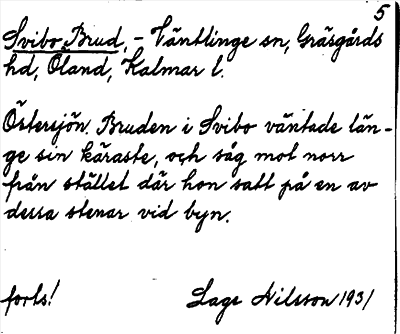 5
Svibo Brud, - Ventlinge sn, Gräsgårds
hd, Öland, Kalmar l.
Östersjön. Bruden i Svibo väntade län-
ge sin käraste, och såg mot norr
från stället där hon satt på en av
dessa stenar vid byn.
forts! Lage Nilsson 1931